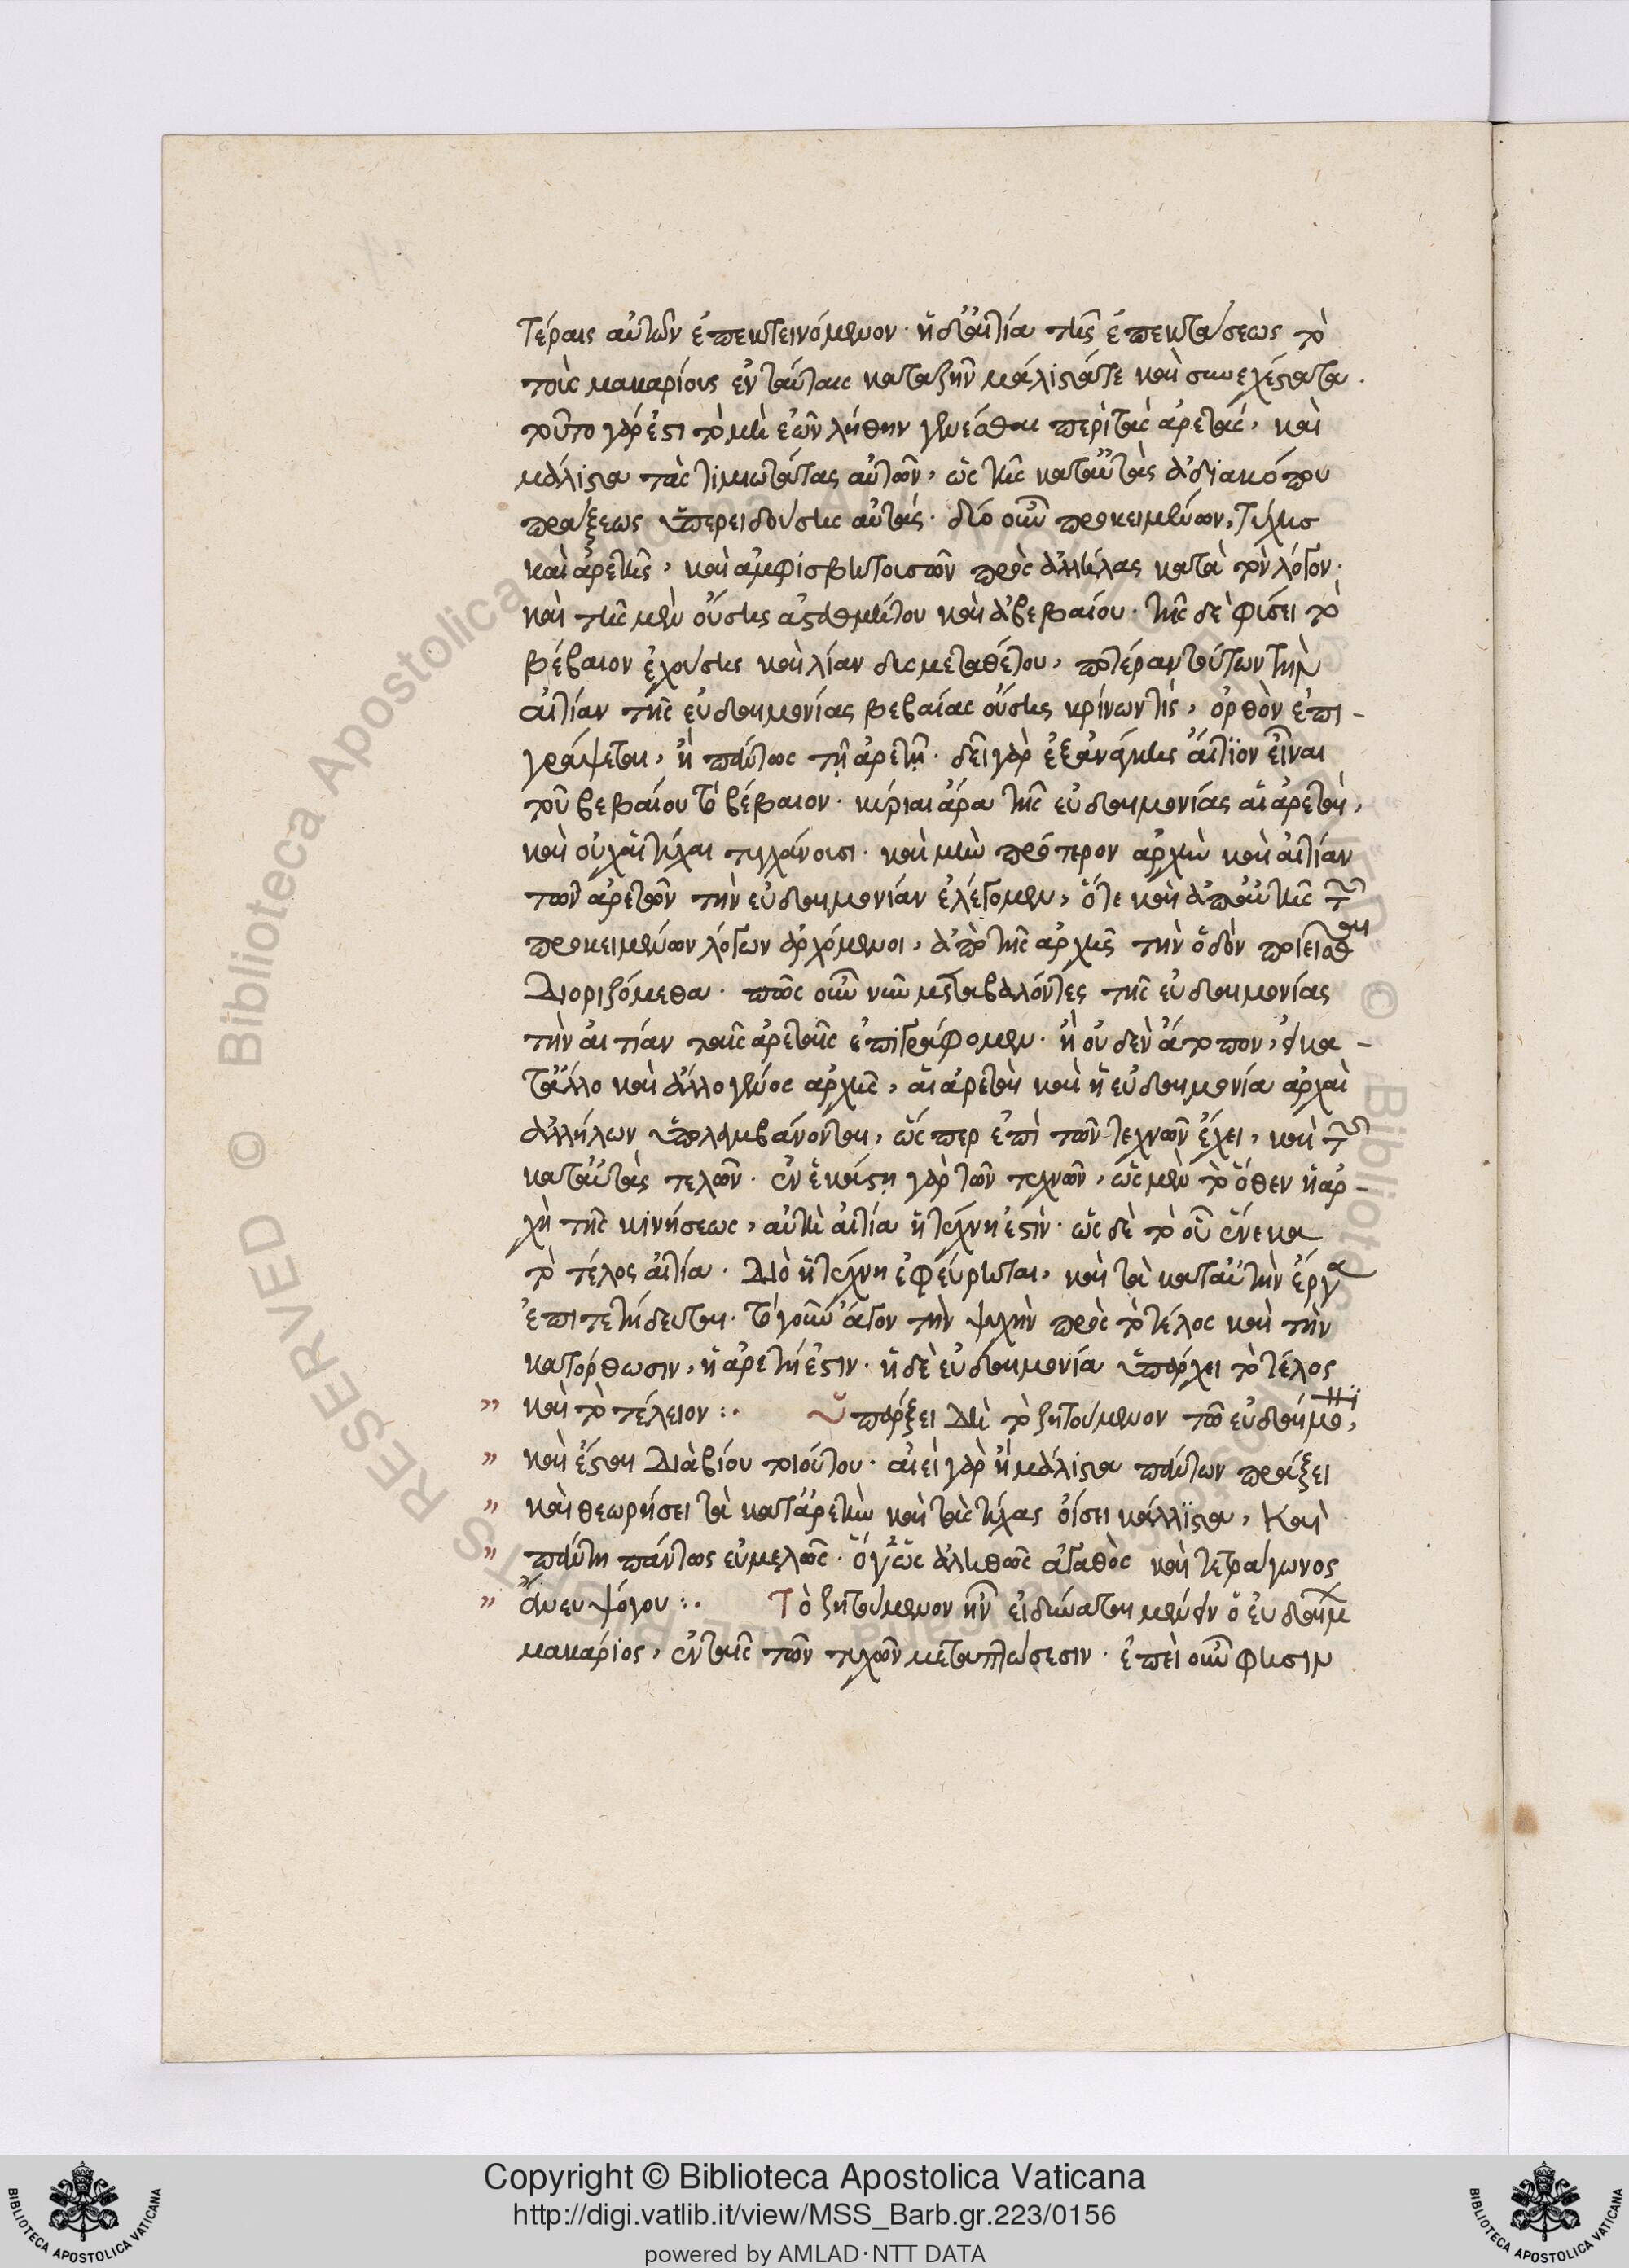 τέραις αὐτῶν ἐπεκτεινόμενον· ἡ δ' αἰτία τῆς ἐπεκτάσεως τὸ
τοὺς μακαρίους ἐν ταύταις καταζῆν μάλιστά τε καὶ συνεχέστατα.
τοῦτο γάρ ἐστι τὸ μὴ ἐῶν λήθην γενέσθαι περὶ τὰς ἀρετάς, καὶ
μάλιστα τὰς τιμιωτάτας αὐτῶν, ὡς τῆς κατ' αὐτὰς ἀδιακόπου
πράξεως ὑπερειδούσης αὐτάς· διὸ οὖν προκειμένων, τύχης
καὶ ἀρετῆς, καὶ ἀμφισβητουσῶν πρὸς ἀλλήλας κατὰ τὸν λόγον·
καὶ τῆς μὲν οὔσης ἀσταθμήτου καὶ ἀβεβαίου· τῆς δὲ φύσει τὸ
βέβαιον ἐχούσης καὶ λίαν δυσμεταθέτου, ποτέραν τούτων τὴν
αἰτίαν τῆς εὐδαιμονίας βεβαίας οὔσης κρίνων τίς, ὀρθὸν ἐπι-
γράψεται, ἢ πάντως τῇ ἀρετῇ· δεῖ γὰρ ἐξανάγκης αἴτιον εἶναι
τοῦ βεβαίου τὸ βέβαιον· κύριαι ἄρα τῆς εὐδαιμονίας αἱ ἀρεταὶ,
καὶ οὐχ αἱ τύχαι τυγχάνουσι· καὶ μὴν πρότερον ἀρχὴν καὶ αἰτίαν
τῶν ἀρετῶν τὴν εὐδαιμονίαν ἐλέγομεν, ὅτε καὶ ἀπ' αὐτῆς τῶν
προκειμένων λόγων ἀρχόμενοι, ἀπὸ τῆς ἀρχῆς τὴν ὁδὸν ποιεῖσθαι
Διοριζόμεθα· πῶς οὖν νῦν μεταβαλόντες τῆς εὐδαιμονίας
τὴν αἰτίαν ταῖς ἀρεταῖς ἐπιγράφομεν· ἢ οὐδὲν ἄτοπον, εἰ κα-
τ' ἄλλο καὶ ἄλλο γένος ἀρχῆς, αἱ ἀρεταὶ καὶ ἡ εὐδαιμονία ἀρχαὶ
ἀλλήλων ὑπολαμβάνονται, ὥσπερ ἐπὶ τῶν τεχνῶν ἔχει, καὶ τῶν
κατ' αὐτὰς τελῶν· ἐν ἑκάστῃ γὰρ τῶν τεχνῶν, ὡς μὲν τὸ ὅθεν ἡ ἀρ-
χὴ τῆς κινήσεως, αὐτὴ αἰτία ἡ τέχνη ἐστὶν· ὡς δὲ τὸ οὗ ἕνεκα
τὸ τέλος αἰτία. Διὸ ἡ τέχνη ἐφεύρηται, καὶ τὰ κατ' αὐτὴν ἔργα
ἐπιτετήδευται· τὸ γοῦν ἄγον τὴν ψυχὴν πρὸς τὸ τέλος καὶ τὴν
κατόρθωσιν, ἡ ἀρετή ἐστιν· ἡ δὲ εὐδαιμονία ὑπάρχει τὸ τέλος
" καὶ τὸ τέλειον :· ὑπάρξει Δὴ τὸ ζητούμενον τῷ εὐδαίμονι,
" καὶ ἔσται Διὰ βίου τοιούτου· αἰεὶ γὰρ ἢ μάλιστα πάντων πράξει
" καὶ θεωρήσει τὰ κατ' ἀρετὴν καὶ τὰς τύχας οἴσει κάλλιστα, Καὶ
" πάντη πάντως εὐμελῶς· ὅγ' ὡς ἀληθῶς ἀγαθὸς καὶ τετράγωνος
" ἄνευ ψόγου :· Τὸ ζητούμενον ἦν εἰ δύναται μένειν ὁ εὐδαίμων
μακάριος, ἐν ταῖς τῶν τυχῶν μεταπτώσεσιν· ἐπεὶ οὖν φησιν
Copyright © Biblioteca Apostolica Vaticana
http://digi.vatlib.it/view/MSS_Barb.gr.223/0156
powered by AMLAD·NTT DATA